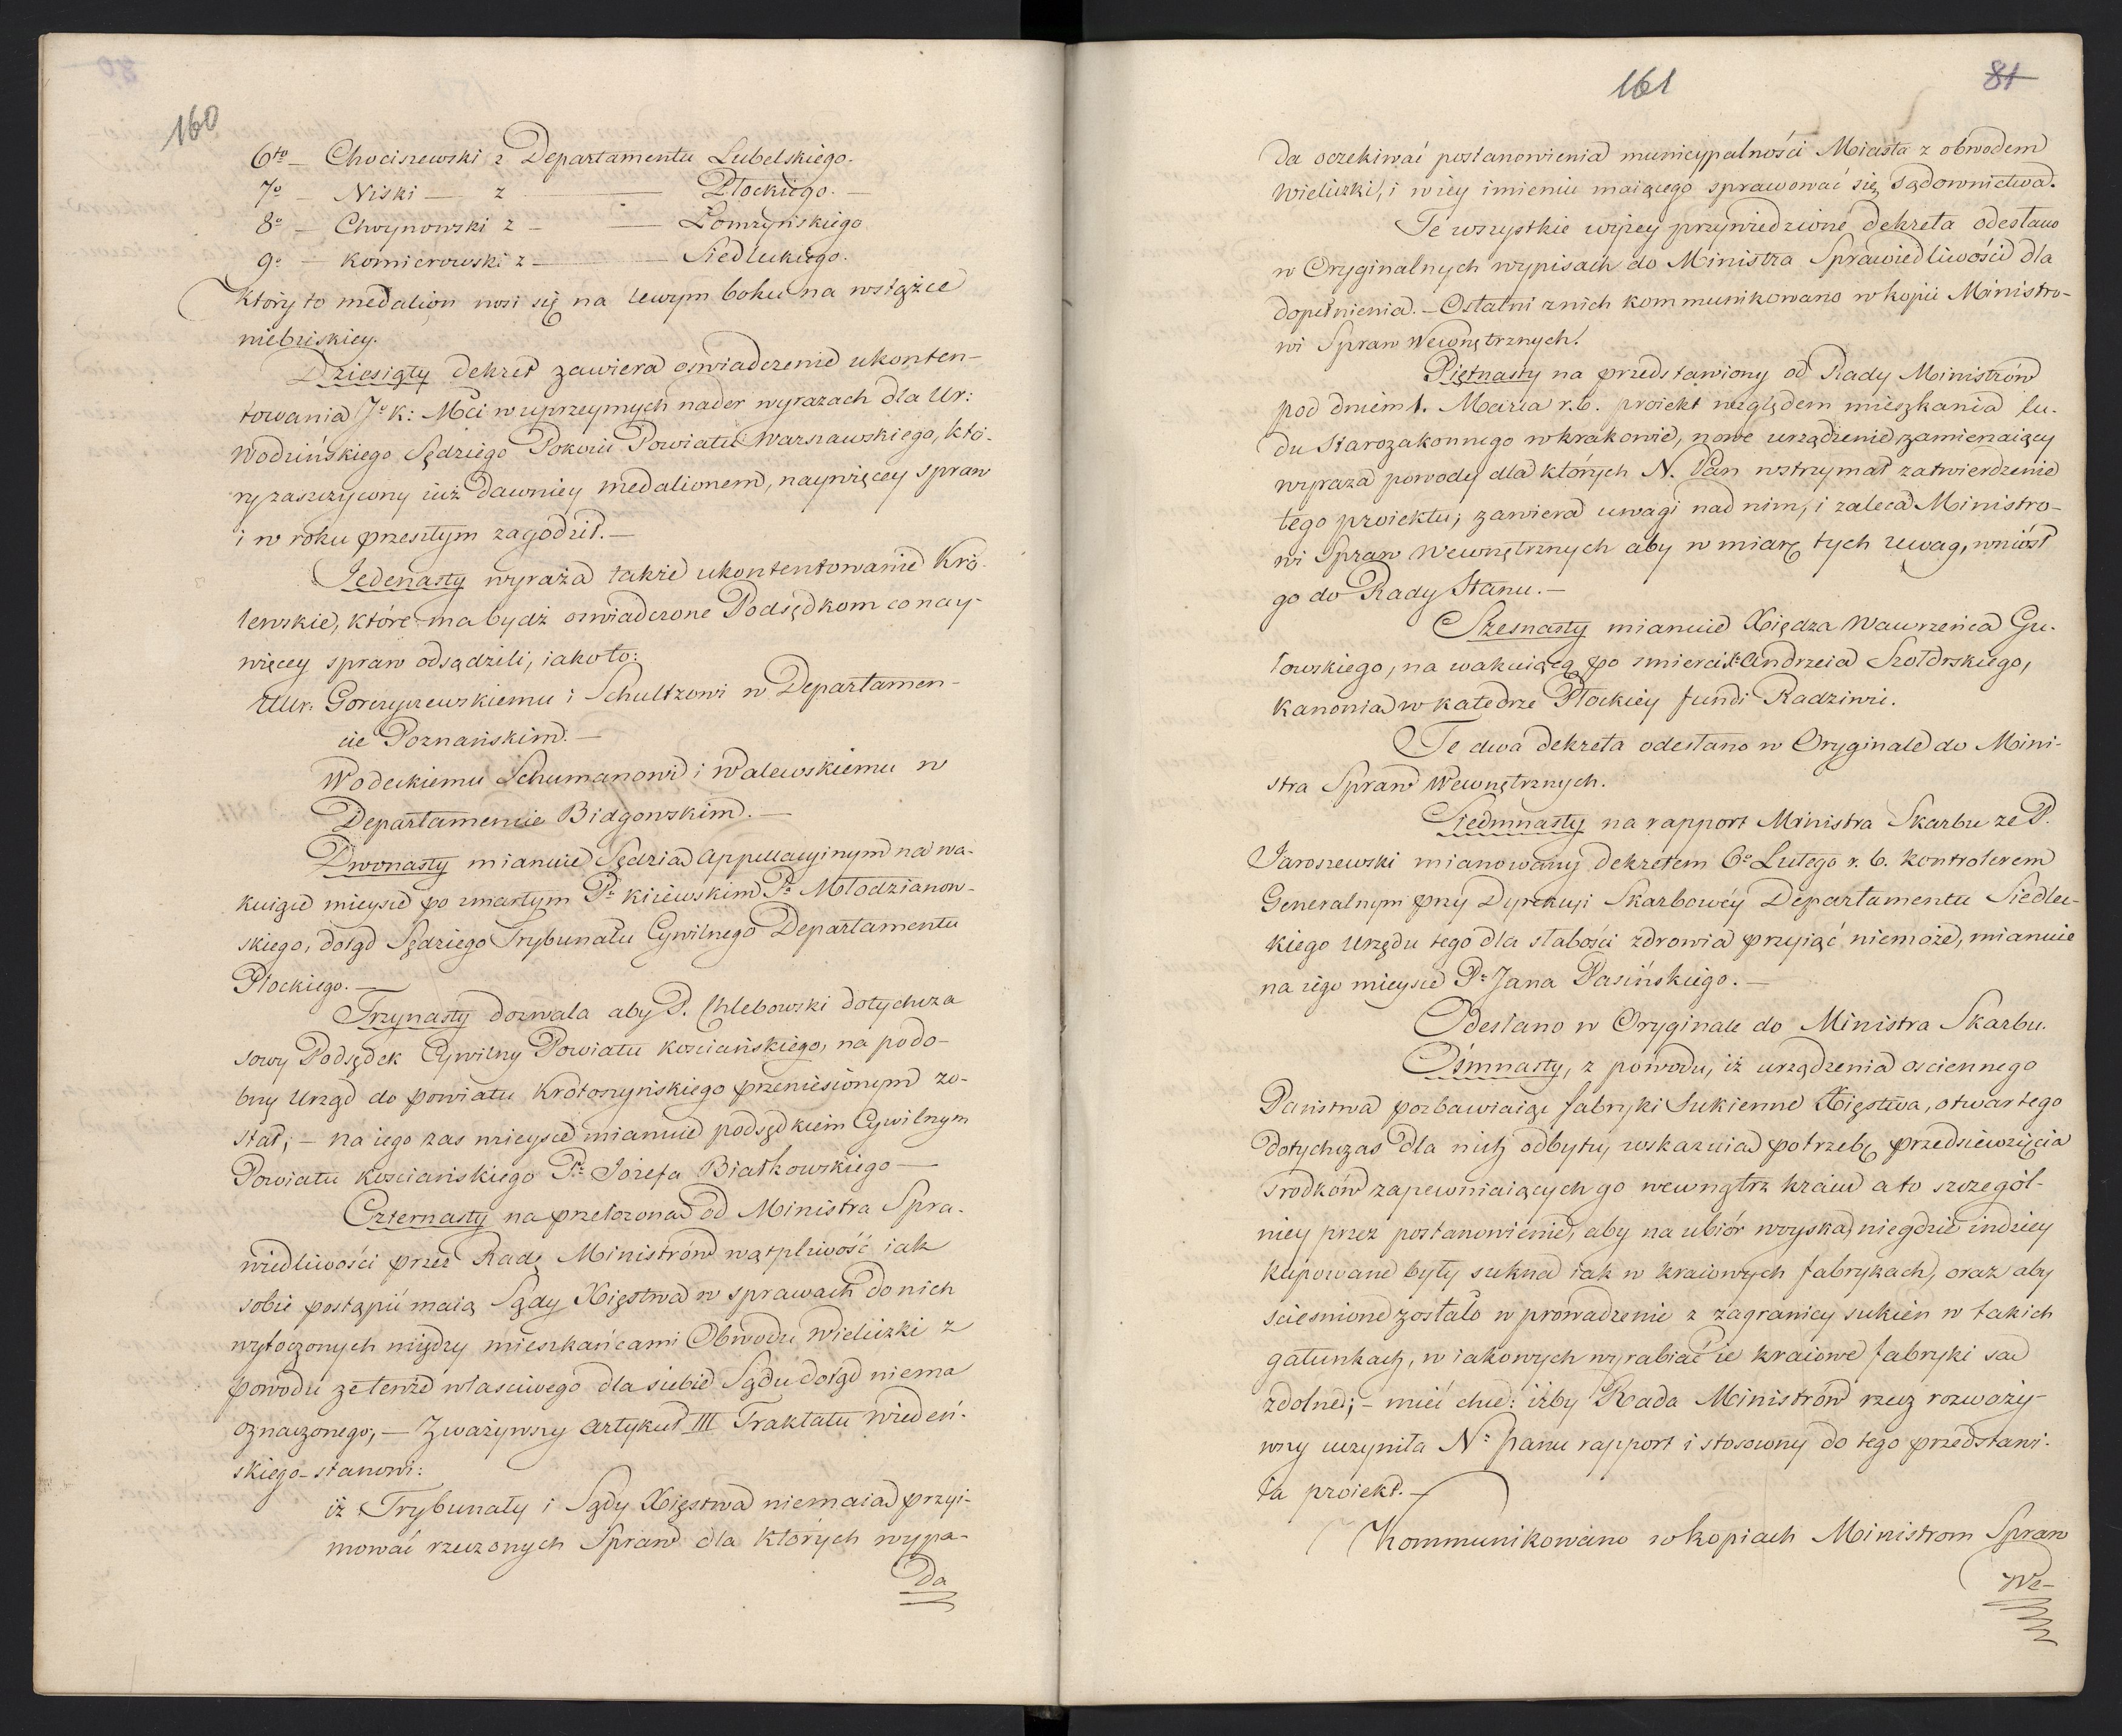 160
6to – Chociszewski z Departamentu Lubelskiego.
7o – Niski — z — Płockiego. —
8o – Chrynowski z – — Łomżyńskiego
9o – Komierowski z — Siedleckiego.
Który to medalion nosi się na lewym boku na wstążce
niebieskiey.
Dziesiąty dekret zawiera oswiadczenie ukonten-
towania Jo K: Mci w uprzeymych nader wyrazach dla Ur:
Wodzińskiego Sędziego Pokoiu Powiatu Warszawskiego, któ-
ry zaszczycony iuż dawniey medalionem, naywięcey spraw
i w roku przeszłym zagodził. —
Jedenasty wyraża także ukontentowanie Kró-
lewskie, które ma bydź oswiadczone Podsędkom co nay-
więcey spraw odsądzili, iako to:
UUr: Gorczyczewskiemu i Schultzowi w Departamen-
cie Poznańskim. —
Wodeckiemu Schumanowi i Walewskiemu w
Departamencie Bidgowskim. —
Dwonasty mianuie Sędzią Appellacyinym na wa-
kuiące mieysce po zmarłym Pu Kiiewskim Pa Młodzianow-
skiego, dotąd Sędziego Trybunału Cywilnego Departamentu
Płockiego. —
Trzynasty dozwala aby P. Chlebowski dotychcza
sowy Podsędek Cywilny Powiatu Kosciańskiego, na podo-
bny Urząd do powiatu Krotoszyńskiego przeniesionym zo-
stał; – na iego zas mieysce mianuie podsędkiem Cywilnym
Powiatu Kosciańskiego Pa Józefa Białkowskiego —
Czternasty na przełożoną od Ministra Spra-
wiedliwości przez Radę Ministrów wątpliwość iak
sobie postąpić maią Sądy Xięstwa w sprawach do nich
wytoczonych między mieszkańcami Obwodu Wieliczki z
powodu że tenże własciwego dla siebie Sądu dotąd niema
oznaczonego, — Zważywszy Artykuł III Traktatu Wiedeń-
skiego – stanowi:
iż Trybunały i Sądy Xięstwa niemaią przyi-
mować rzeczonych Spraw dla których wypa-
da
161
81
da oczekiwać postanowienia municypalności Miasta z obwodem
Wieliczki, i w iey imieniu maiącego sprawować się Sądownictwa.
Te wszystkie wyżey przywiedzione dekreta odesłano
w Oryginalnych wypisach do Ministra Sprawiedliwości dla
dopełnienia. – Ostatni z nich kommunikowano w kopii Ministro-
wi Spraw Wewnętrznych.
Piętnasty na przedstawiony od Rady Ministrów
pod dniem 1. Marca r. b. proiekt względem mieszkania lu-
du Starozakonnego w Krakowie, nowe urządzenie zamierzaiący
wyraża powody dla których N. Pan wstrzymał zatwierdzenie
tego proiektu; zawiera uwagi nad nim, i zaleca Ministro-
wi Spraw Wewnętrznych aby w miarę tych uwag, wniósł
go do Rady Stanu. —
Szesnasty mianuie Xiędza Wawrzeńca Gu-
towskiego, na wakuiącą po smierci X. Andrzeia Szołdrskiego,
kanonią w katedrze Płockiey fundi Radziwie.
Te dwa dekreta odesłano w Oryginale do Mini-
stra Spraw Wewnętrznych.
Siedmnasty na rapport Ministra Skarbu że P.
Jaroszewski mianowany dekretem 6o Lutego r. b. kontrolerem
Generalnym przy Dyrekcyi Skarbowéy Departamentu Siedlec-
kiego Urzędu tego dla słabości zdrowia przyiąć niemoże, mianuie
na iego mieysce Pa Jana Pasińskiego. —
Odesłano w Oryginale do Ministra Skarbu.
Ośmnasty, z powodu, iż urządzenia osciennego
Państwa pozbawiaiąc fabryki Sukienne Xięstwa, otwartego
dotychczas dla nich odbytu, wskazuią potrzebę przedsiewzięcia
srodków zapewniaiących go wewnątrz kraiu a to szczegól-
niey przez postanowienie, aby na ubiór woyska niegdzie indziey
kupowane były sukna iak w kraiowych fabrykach, oraz aby
sciesnione zostało w prowadzenie z zagranicy sukien w takich
gatunkach, w iakowych wyrabiać ie kraiowe fabryki są
zdolne; – mieć chce: iżby Rada Ministrów rzecz rozważy-
wszy uczyniła No Panu rapport i stosowny do tego przedstawi-
ła proiekt. —
Kommunikowano w kopiach Ministrom Spraw
We-